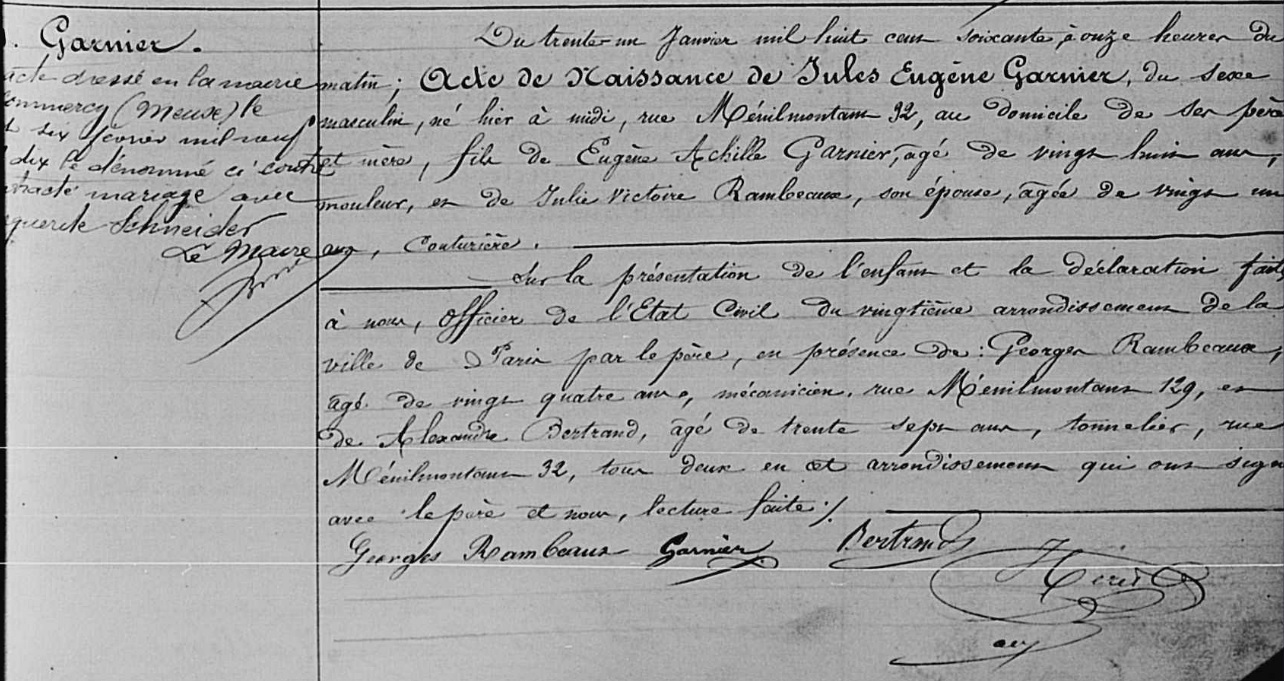 Garnier.
acte dressé en la mairie
Commercy (Meuse) le
six février mil neuf
dix le dénommé ci contre
contracté mariage avec
Schneider
Le Maire
Du trente-un Janvier mil huit cent soixante, à onze heures du
matin; Acte de Naissance de Jules Eugène Garnier, du sexe
masculin, né hier à midi, rue Ménilmontant 32, au domicile de ses père
et mère, fils de Eugène Achille Garnier, âgé de vingt huit ans,
mouleur, et de Julie Victoire Rambeaux, son épouse, âgée de vingt un
ans, Couturière.
Sur la présentation de l'enfant et la déclaration faite
à nous, Officier de l'Etat Civil du vingtième arrondissement de la
ville de Paris par le père, en présence de: Georges Rambeaux,
âgé de vingt quatre ans, mécanicien, rue Ménilmontant 129, et
de Alexandre Bertrand, âgé de trente sept ans, tonnelier, rue
Ménilmontant 32, tous deux en cet arrondissement qui ont signé
avec le père et nous, lecture faite ./.
Georges Rambeaux Garnier Bertrand